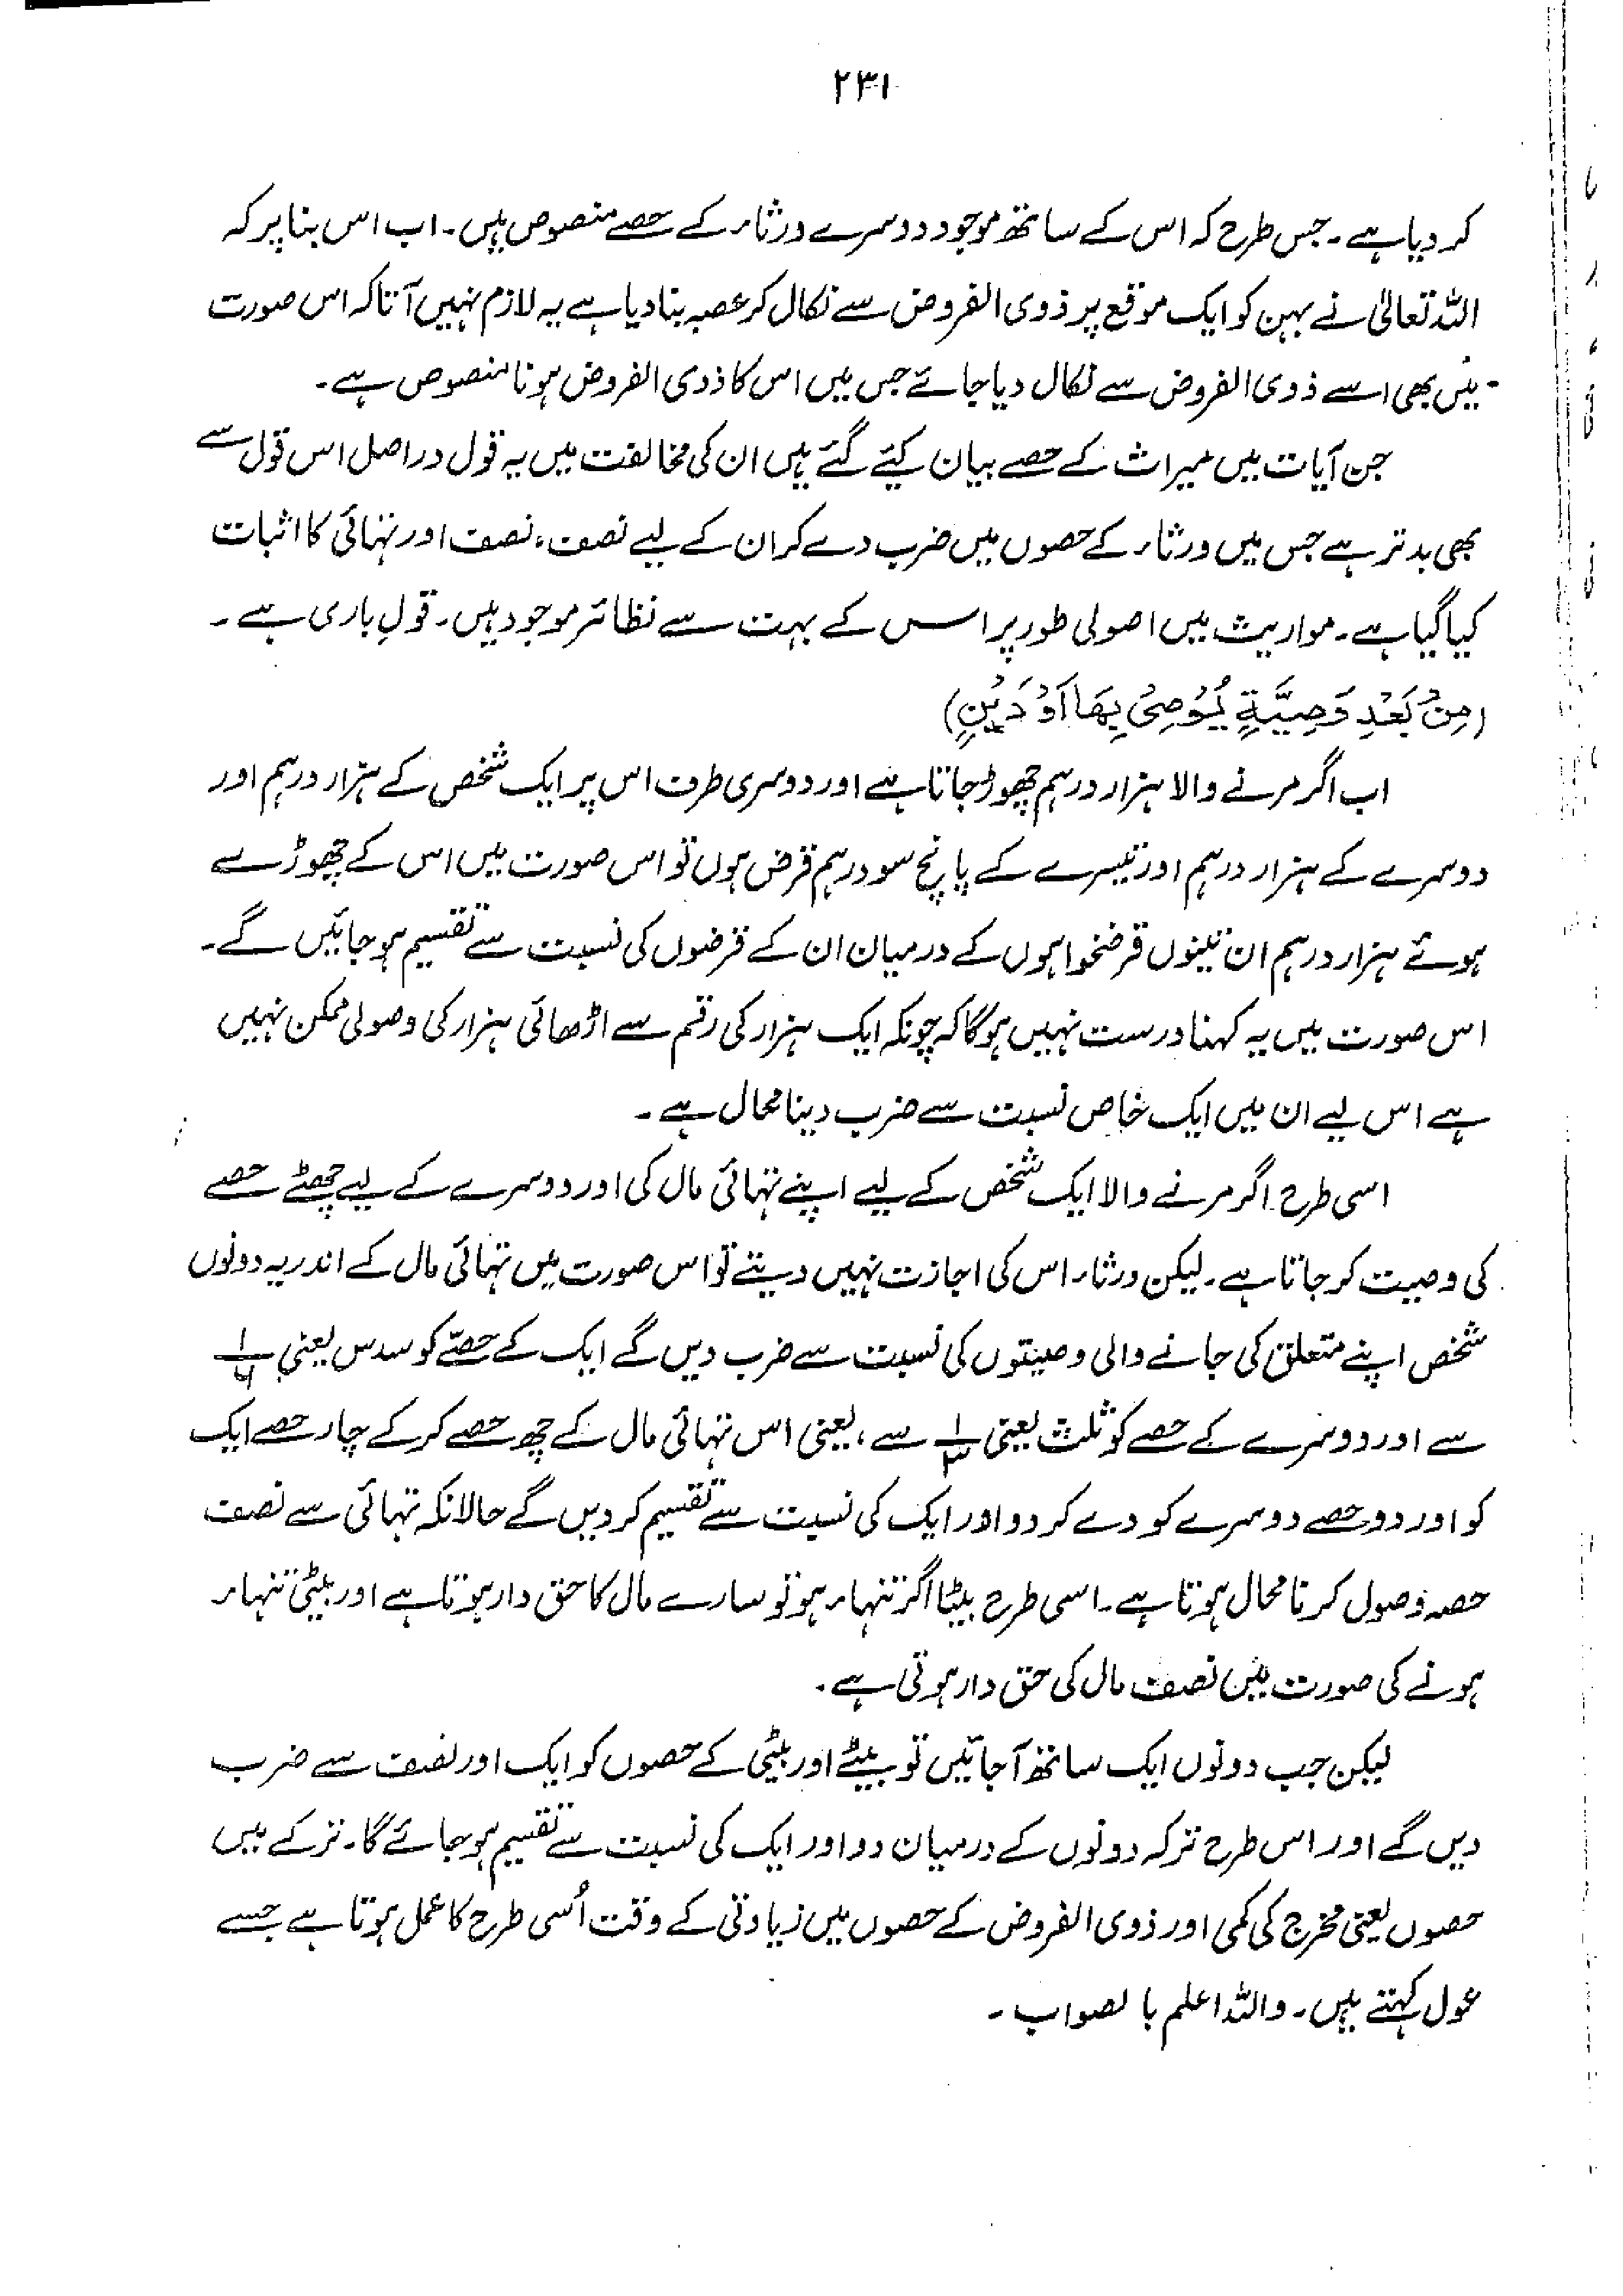 ۲۳۱
کر دیا ہے۔ جس طرح کہ اس کے ساتھ موجود دوسرے ورثاء کے حصے منصوص ہیں۔ اب اس بنا پر کہ
اللہ تعالیٰ نے بہن کو ایک موقع پر ذوی الفروض سے نکال کر عصبہ بنا دیا ہے یہ لازم نہیں آتا کہ اس صورت
میں بھی اسے ذوی الفروض سے نکال دیا جائے جس میں اس کا ذوی الفروض ہونا منصوص ہے۔
جن آیات میں میراث کے حصے بیان کیئے گئے ہیں ان کی مخالفت میں یہ قول دراصل اس قول سے
بھی بدتر ہے جس میں ورثاء کے حصوں میں ضرب دے کر ان کے لیے نصف، نصف اور تہائی کا اثبات
کیا گیا ہے۔ مواریث میں اصولی طور پر اس کے بہت سے نظائر موجود ہیں۔ قولِ باری ہے۔
(مِنْ بَعْدِ وَصِيَّةٍ يُوْصِيْ بِهَا اَوْ دَيْنٍ)
اب اگر مرنے والا ہزار درہم چھوڑ جاتا ہے اور دوسری طرف اس پر ایک شخص کے ہزار درہم اور
دوسرے کے ہزار درہم اور تیسرے کے پانچ سو درہم قرض ہوں تو اس صورت میں اس کے چھوڑے
ہوئے ہزار درہم ان تینوں قرضخواہوں کے درمیان ان کے قرضوں کی نسبت سے تقسیم ہو جائیں گے۔
اس صورت میں یہ کہنا درست نہیں ہوگا کہ چونکہ ایک ہزار کی رقم سے اڑھائی ہزار کی وصولی ممکن نہیں
ہے اس لیے ان میں ایک خاص نسبت سے ضرب دینا محال ہے۔
اسی طرح اگر مرنے والا ایک شخص کے لیے اپنے تہائی مال کی اور دوسرے کے لیے چھٹے حصے
کی وصیت کر جاتا ہے۔ لیکن ورثاء اس کی اجازت نہیں دیتے تو اس صورت میں تہائی مال کے اندر یہ دونوں
شخص اپنے متعلق کی جانے والی وصیتوں کی نسبت سے ضرب دیں گے ایک کے حصّے کو سدس یعنی ۱/۶
سے اور دوسرے کے حصے کو ثلث یعنی ۱/۳ سے، یعنی اس تہائی مال کے چھ حصے کر کے چار حصے ایک
کو اور دو حصے دوسرے کو دے کر دو اور ایک کی نسبت سے تقسیم کر دیں گے حالانکہ تہائی سے نصف
حصہ وصول کرنا محال ہوتا ہے۔ اسی طرح بیٹا اگر تنہاء ہو تو سارے مال کا حق دار ہوتا ہے اور بیٹی تنہاء
ہونے کی صورت میں نصف مال کی حق دار ہوتی ہے۔
لیکن جب دونوں ایک ساتھ آجائیں تو بیٹے اور بیٹی کے حصوں کو ایک اور نصف سے ضرب
دیں گے اور اس طرح ترکہ دونوں کے درمیان دو اور ایک کی نسبت سے تقسیم ہو جائے گا۔ ترکے میں
حصوں یعنی مخرج کی کمی اور ذوی الفروض کے حصوں میں زیادتی کے وقت اُسی طرح کا عمل ہوتا ہے جسے
عول کہتے ہیں۔ واللہ اعلم بالصواب۔